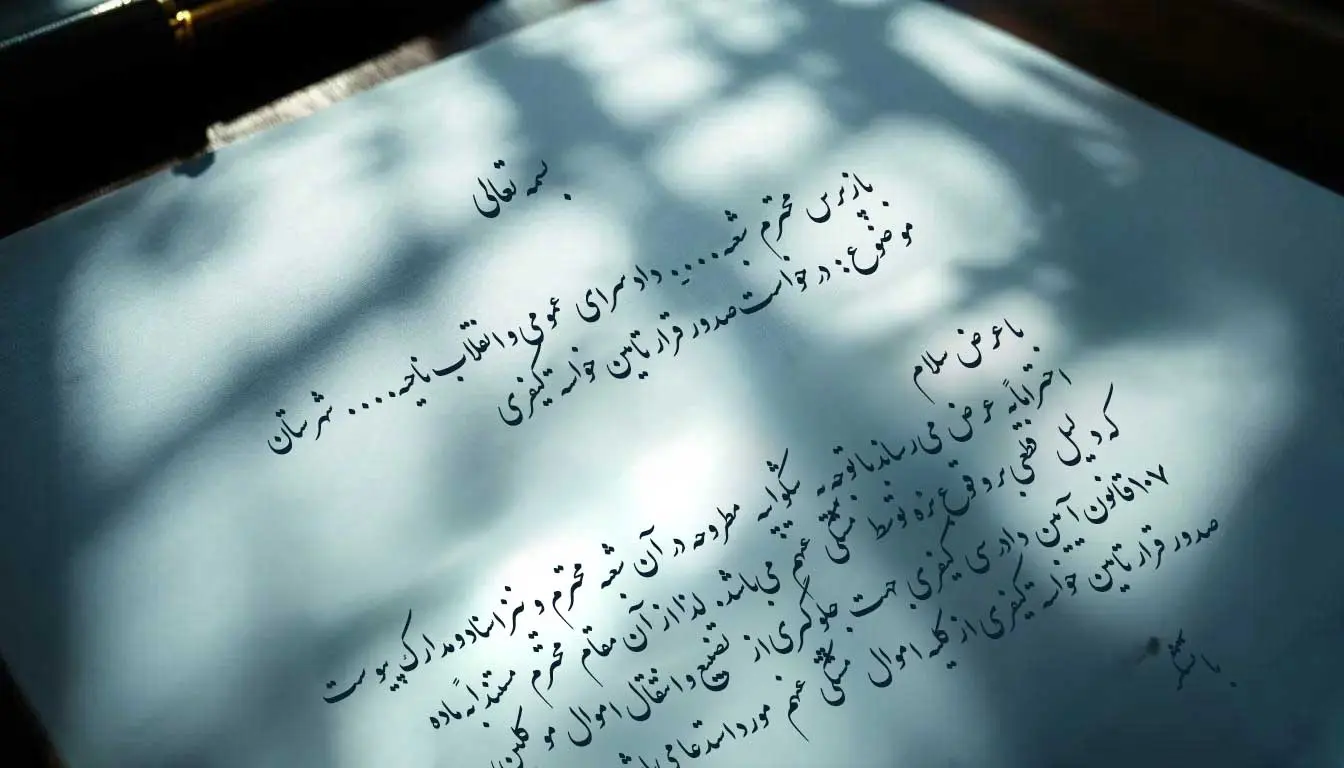 بسمه تعالی
بازپرس محترم شعبه.... دادسرای عمومی و انقلاب ناحیه.... شهرستان
موضوع: درخواست صدور قرار تامین خواسته کیفری
با عرض سلام
احتراماً به عرض می‌رساند با توجه به شکوائیه مطروحه در آن شعبه محترم و نیز اسناد و مدارک پیوست
که دلیل قطعی بر وقوع بزه توسط مشتکی عنهم می‌باشد. لذا از آن مقام محترم مستنداً به ماده
۱۰۷ قانون آیین دادرسی کیفری جهت جلوگیری از تضییع و انتقال اموال موکلین
صدور قرار تامین خواسته کیفری از کلیه اموال مشتکی عنهم مورد استدعا می
با تشکر